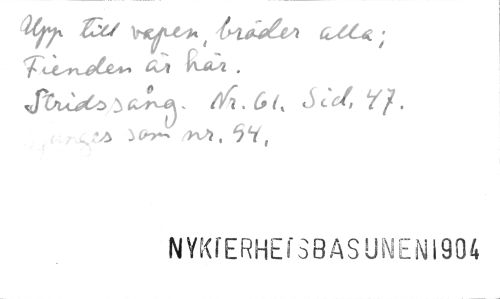 Upp till vapen, bröder alla;
Fienden är här.
Stridssång. Nr. 61. Sid. 47.
Sjunges som nr. 94.
NYKTERHETSBASUNEN 1904